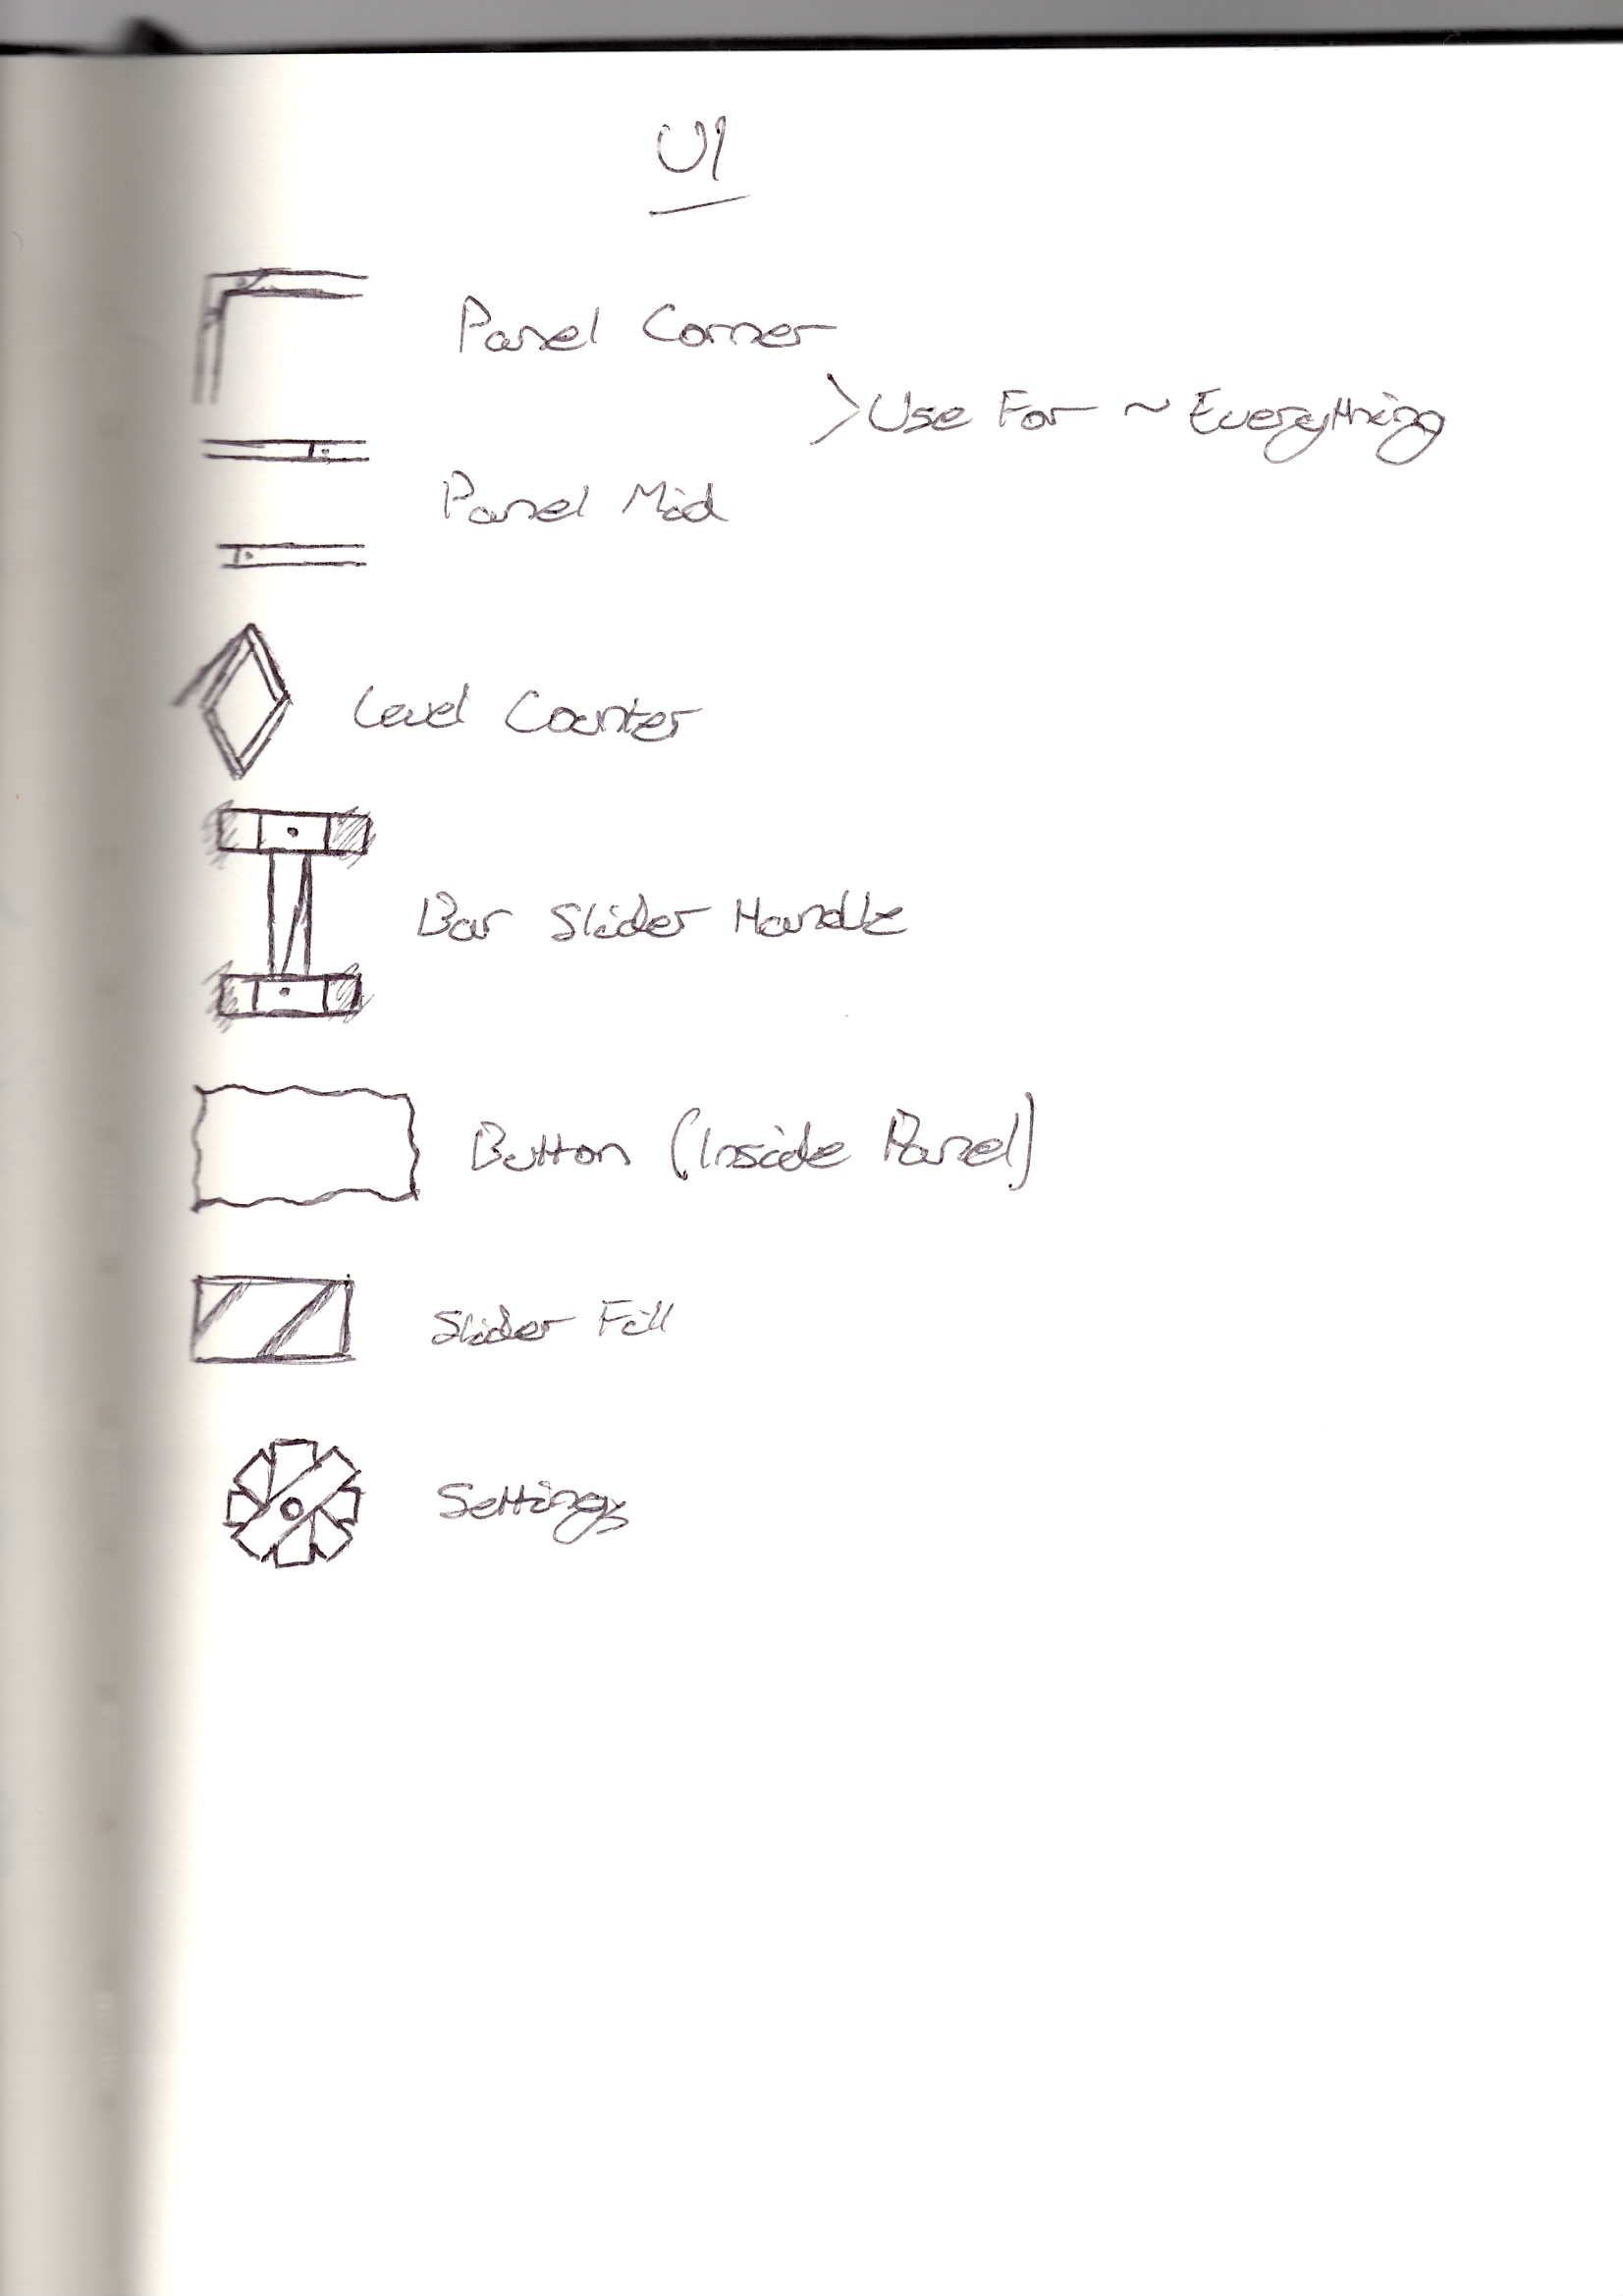 UI
Panel Corner
> Use For ~ Everything
Panel Mid
Level Counter
Bar Slider Handle
Button (Inside Panel)
Slider Fill
Settings